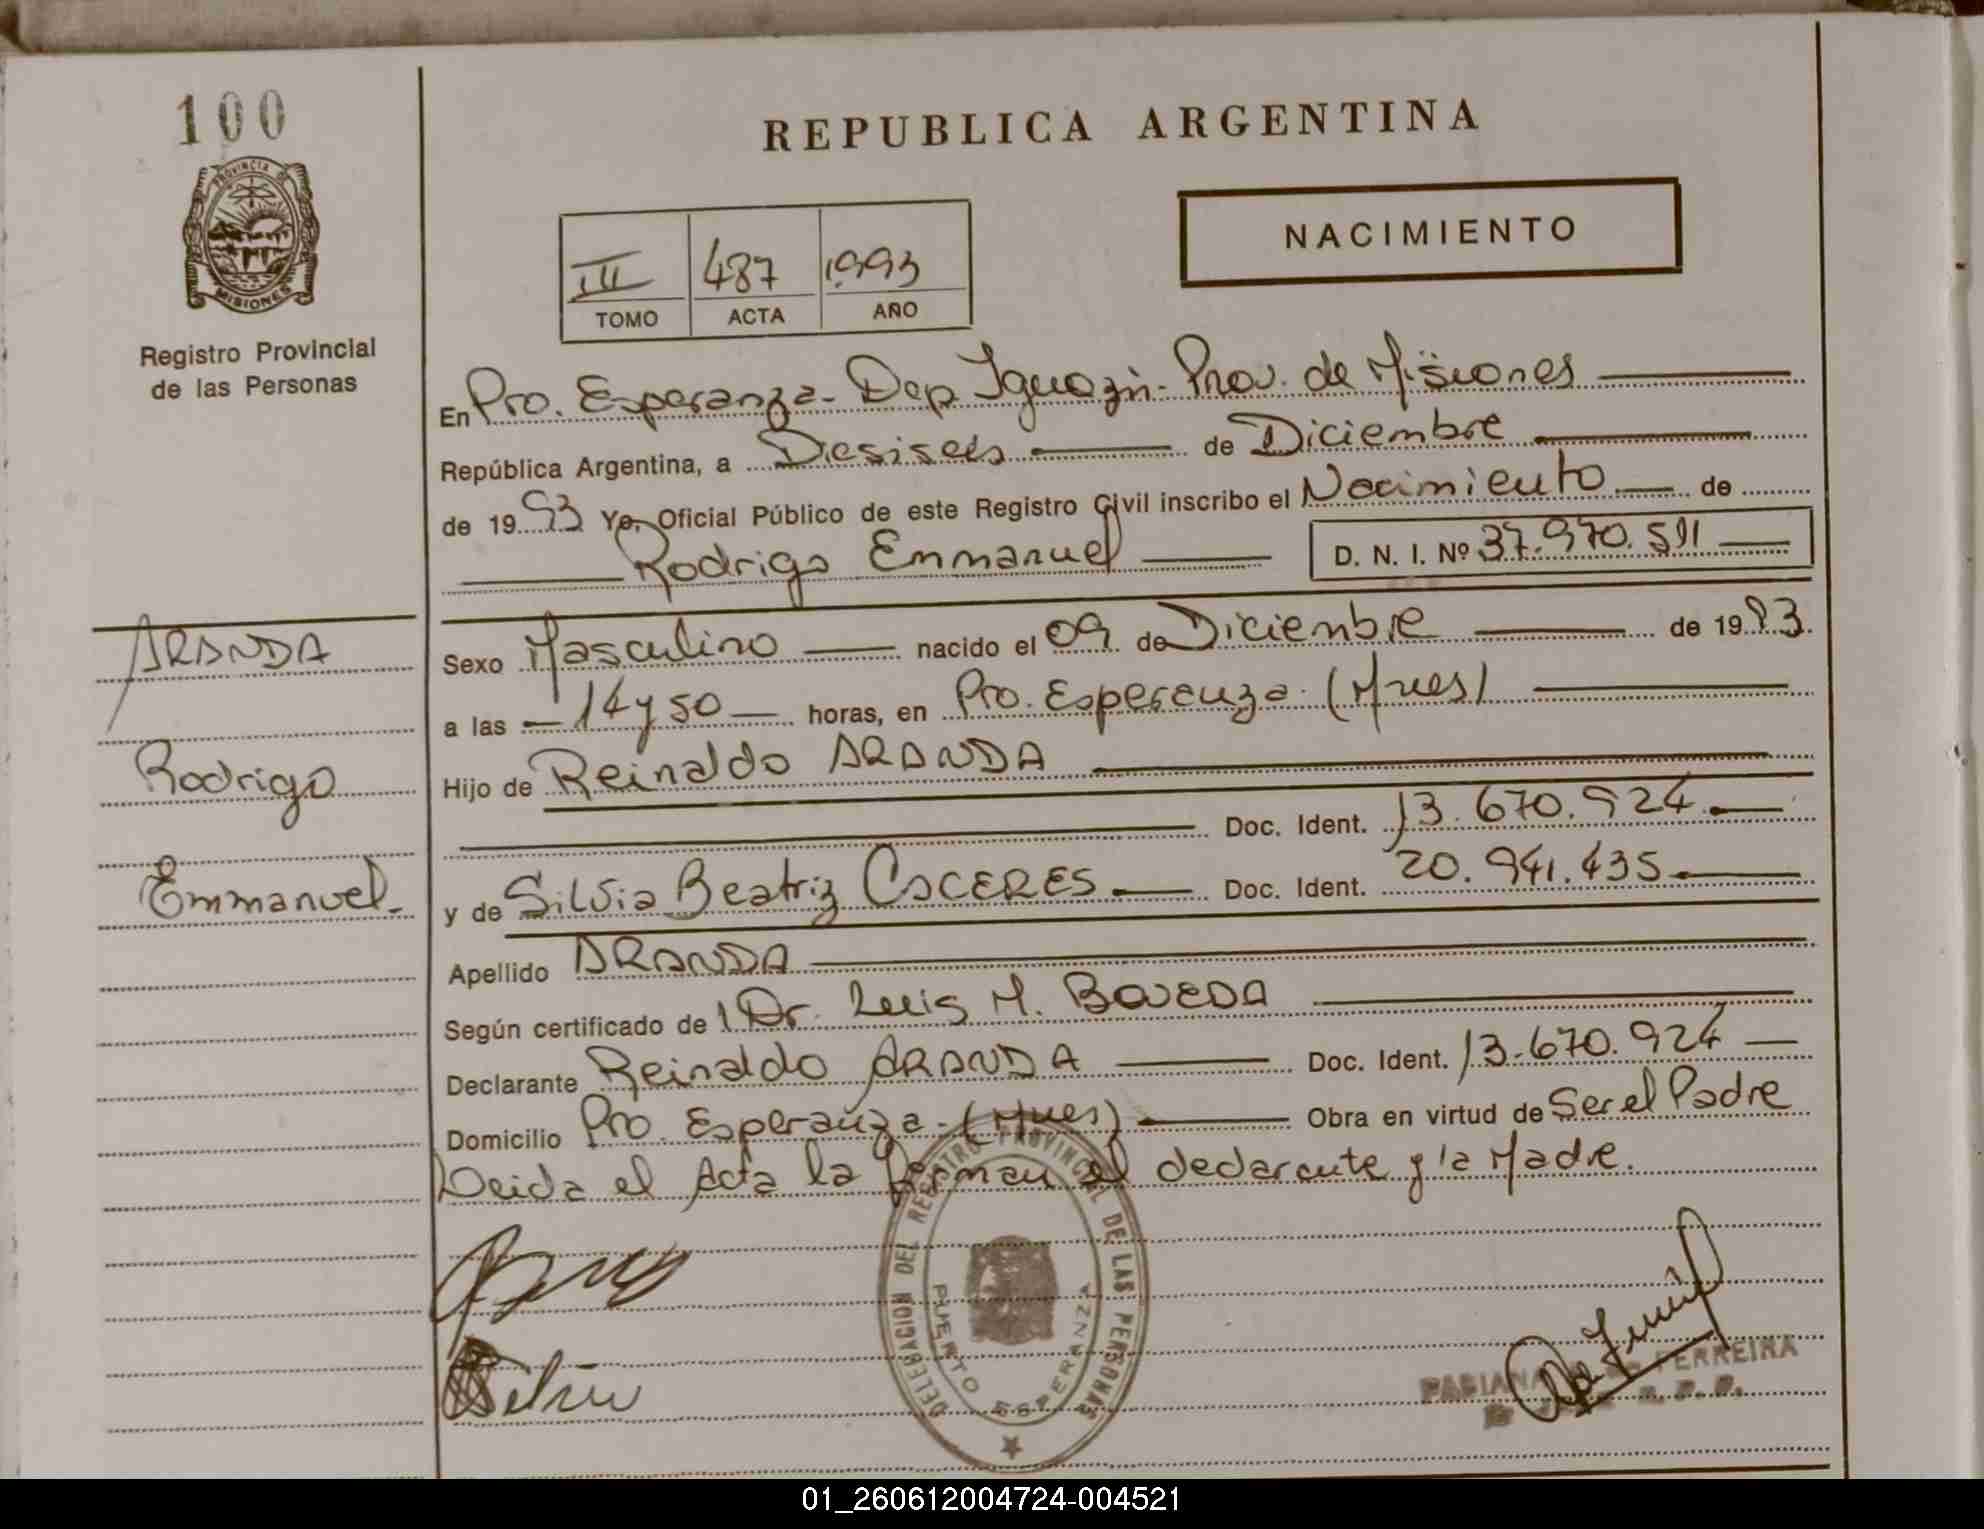 100
REPUBLICA ARGENTINA
PROVINCIA DE
MISIONES
NACIMIENTO
III 487 1993
TOMO ACTA AÑO
Registro Provincial
de las Personas
En Pto. Esperanza - Dep. Iguazú - Prov. de Misiones
República Argentina, a Diesiseis de Diciembre
de 1993 Yo, Oficial Público de este Registro Civil inscribo el Nacimiento de
Rodrigo Emmanuel D. N. I. Nº 37.970.511
ARANDA
Rodrigo
Emmanuel
Sexo Masculino nacido el 09 de Diciembre de 1993
a las 14 y 50 horas, en Pto. Esperanza (Mnes)
Hijo de Reinaldo ARANDA
Doc. Ident. 13.670.924
y de Silvia Beatriz CACERES Doc. Ident. 20.941.435
Apellido ARANDA
Según certificado de Dr. Luis M. BOVEDA
Declarante Reinaldo ARANDA Doc. Ident. 13.670.924
Domicilio Pto. Esperanza - (Mnes) Obra en virtud de Ser el Padre
Leida el Acta la firman el declarante y la Madre.
DELEGACION DEL REGISTRO PROVINCIAL DE LAS PERSONAS
PUERTO ESPERANZA
Silvia
FABIANA FERREIRA
01_260612004724-004521